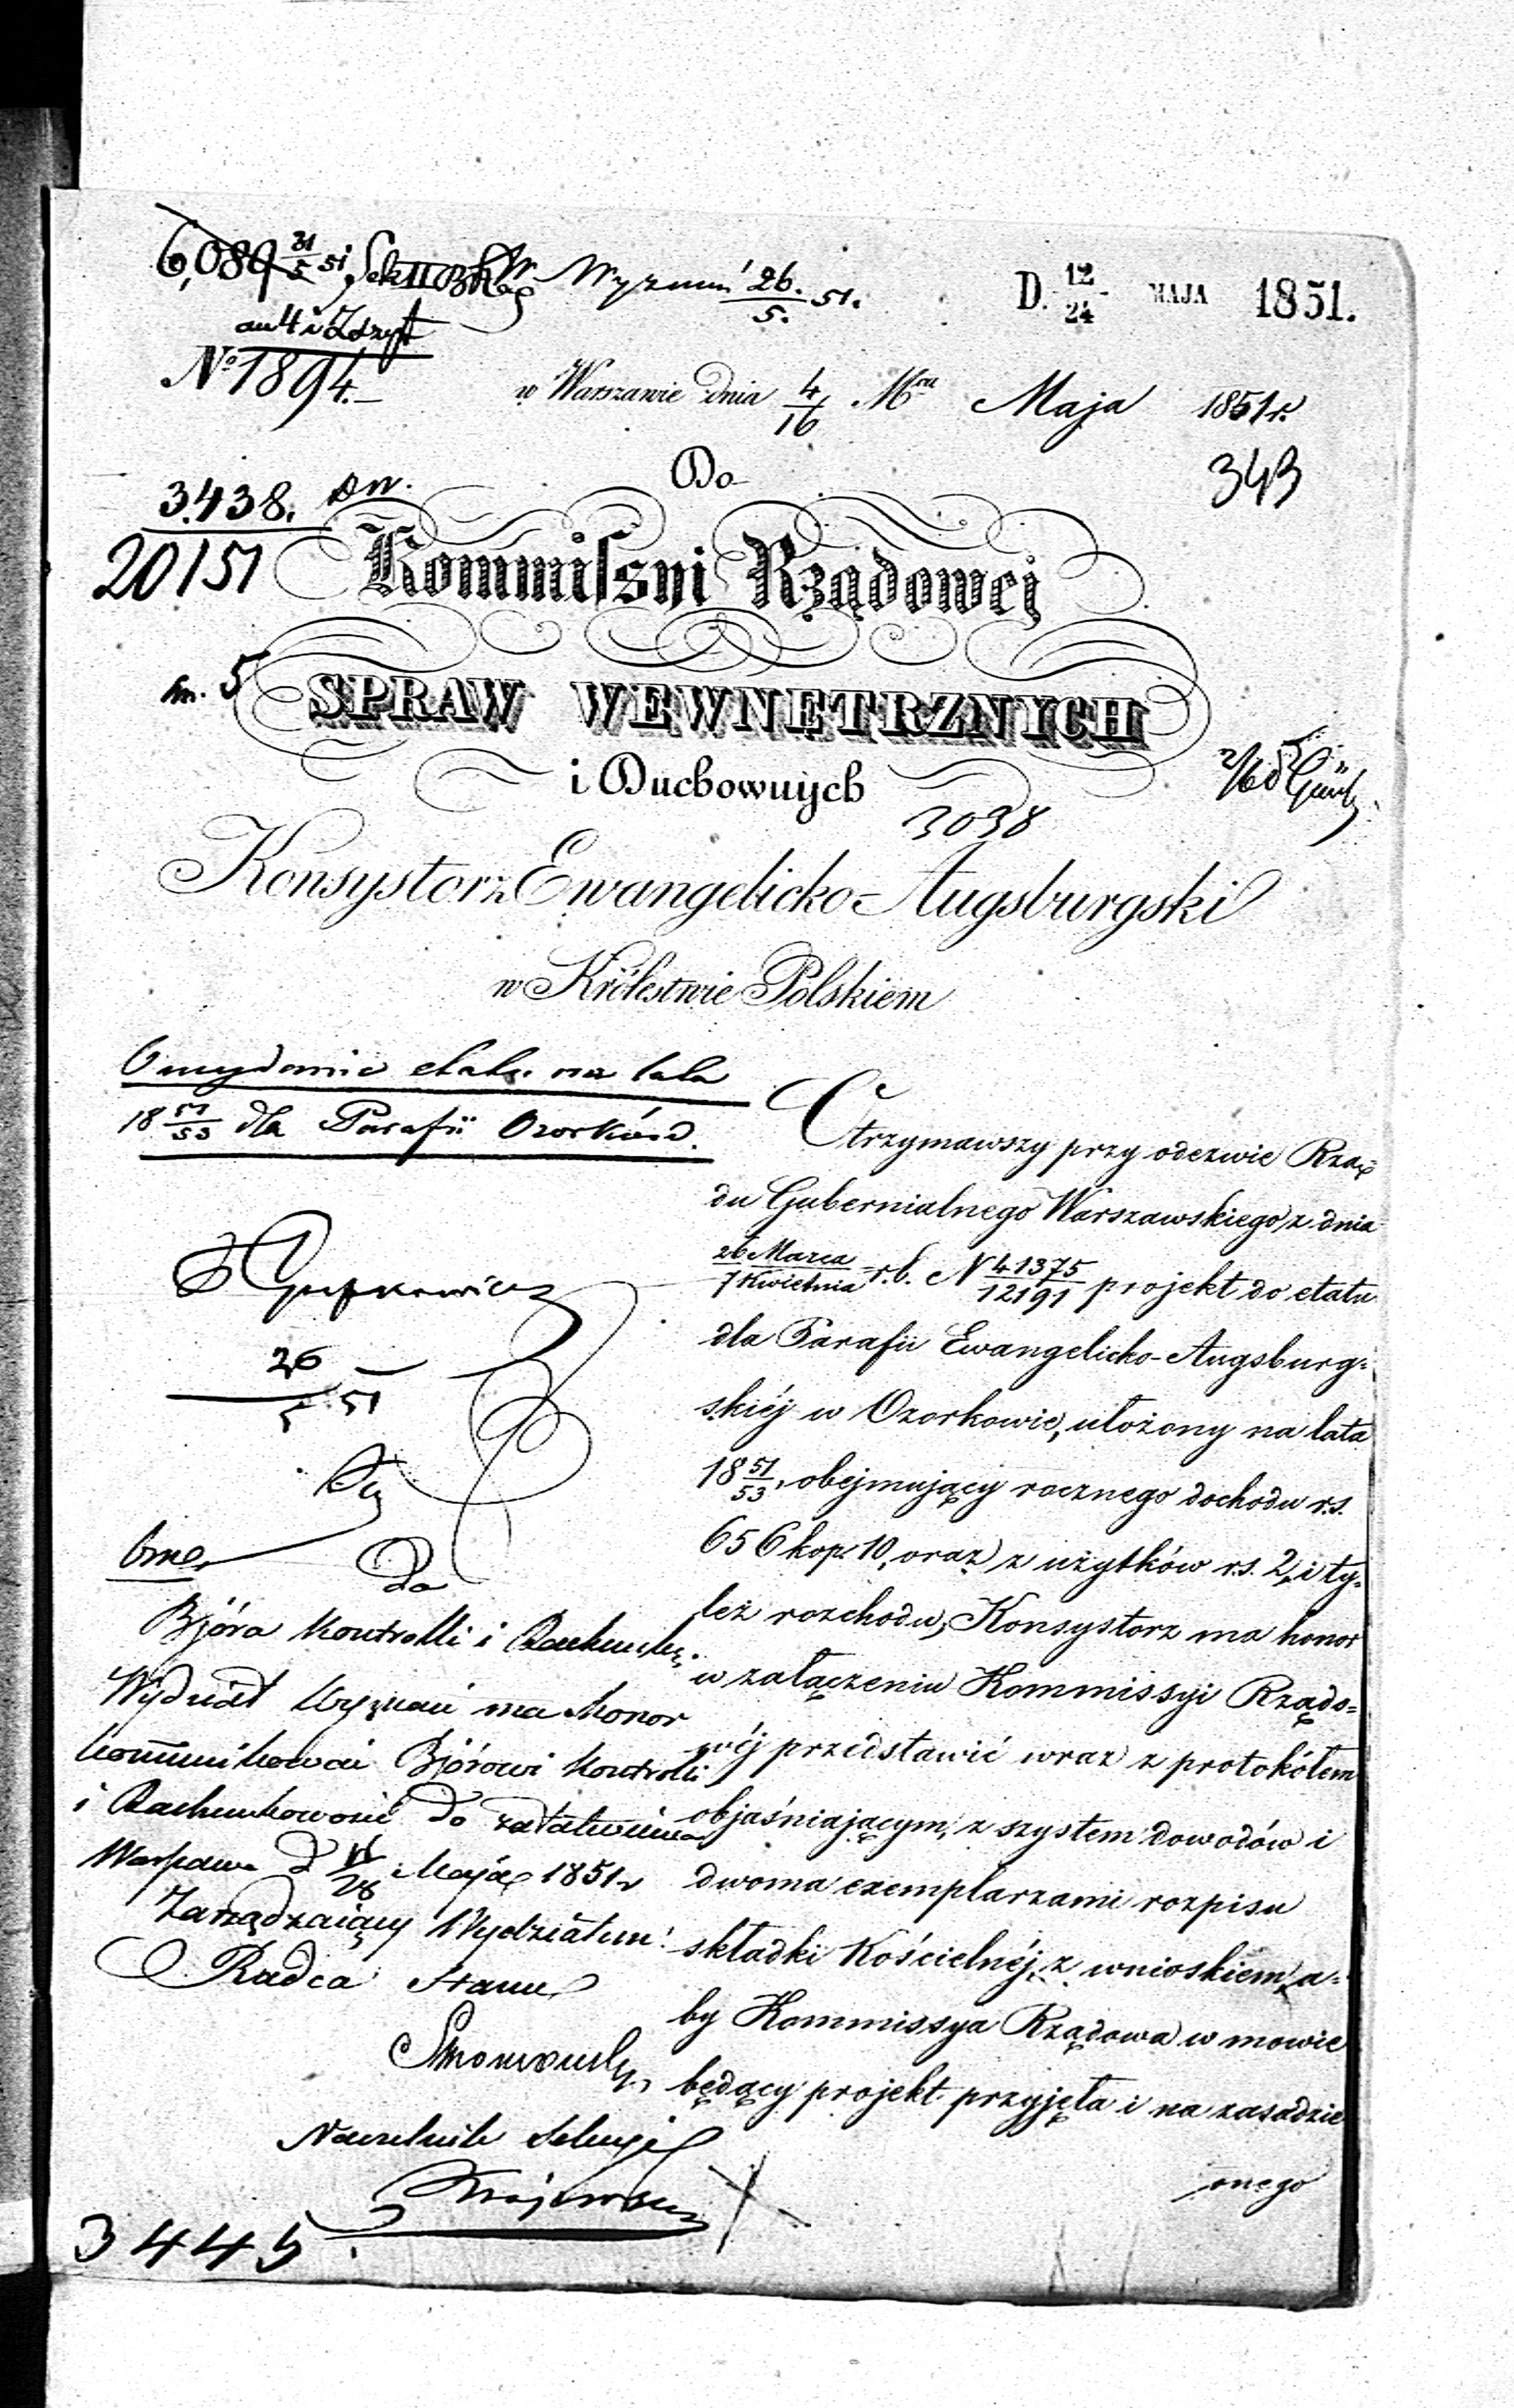 6,089 31/5 51
Wyznań 26./5. 51.
D. 12/24 MAJA 1851.
№ 1894.
w Warszawie dnia 4/16 Mca Maja 1851 r.
343
Do
3438.
20151
Kommiſsyi Rządowej
5
SPRAW WEWNĘTRZNYCH
i Duchownych
3038
Konsystorz Ewangelicko-Augsburgski
w Królestwie Polskiem
O wydanie etatu na lata
18 51/53 dla Parafii Ozorków.
Otrzymawszy przy odezwie Rzą-
du Gubernialnego Warszawskiego z dnia
26 Marca/7 Kwietnia r.b. N 41375/12191 projekt do etatu
dla Parafii Ewangelicko-Augsburg-
skiéj w Ozorkowie, ułożony na lata
18 51/53, obejmujący rocznego dochodu r.s.
656 kop. 10, oraz z użytków r.s. 2, i ty-
leż rozchodu, Konsystorz ma honor
w załączeniu Kommissyi Rządo-
wéj przedstawić wraz z protokółem
objaśniającym, z szytem dowodów i
dwoma exemplarzami rozpisu
składki Kościelnéj, z wnioskiem, a-
by Kommissya Rządowa w mowie
będący projekt przyjęła i na zasadzie
onego
26/5 51
Do
Bjóra Kontrolli i Rachunk:
Wydział Wyznań ma Honor
kommunikować Bjórowi Kontrolli
i Rachunkowości do załatwienia
Warszawa d 16/28 Maja 1851 r
Zarządzaiący Wydziałem
Radca Stanu
Naczelnik Sekcyi
3445